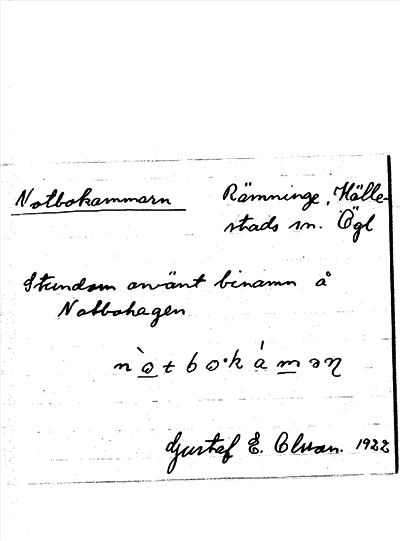 Notbokammarn Rämninge, Hälle-
stads sn. Ögl
Stundom använt binamn å
Notbohagen
n ò t b o · k á m ə n
Gustaf E. Olson. 1922